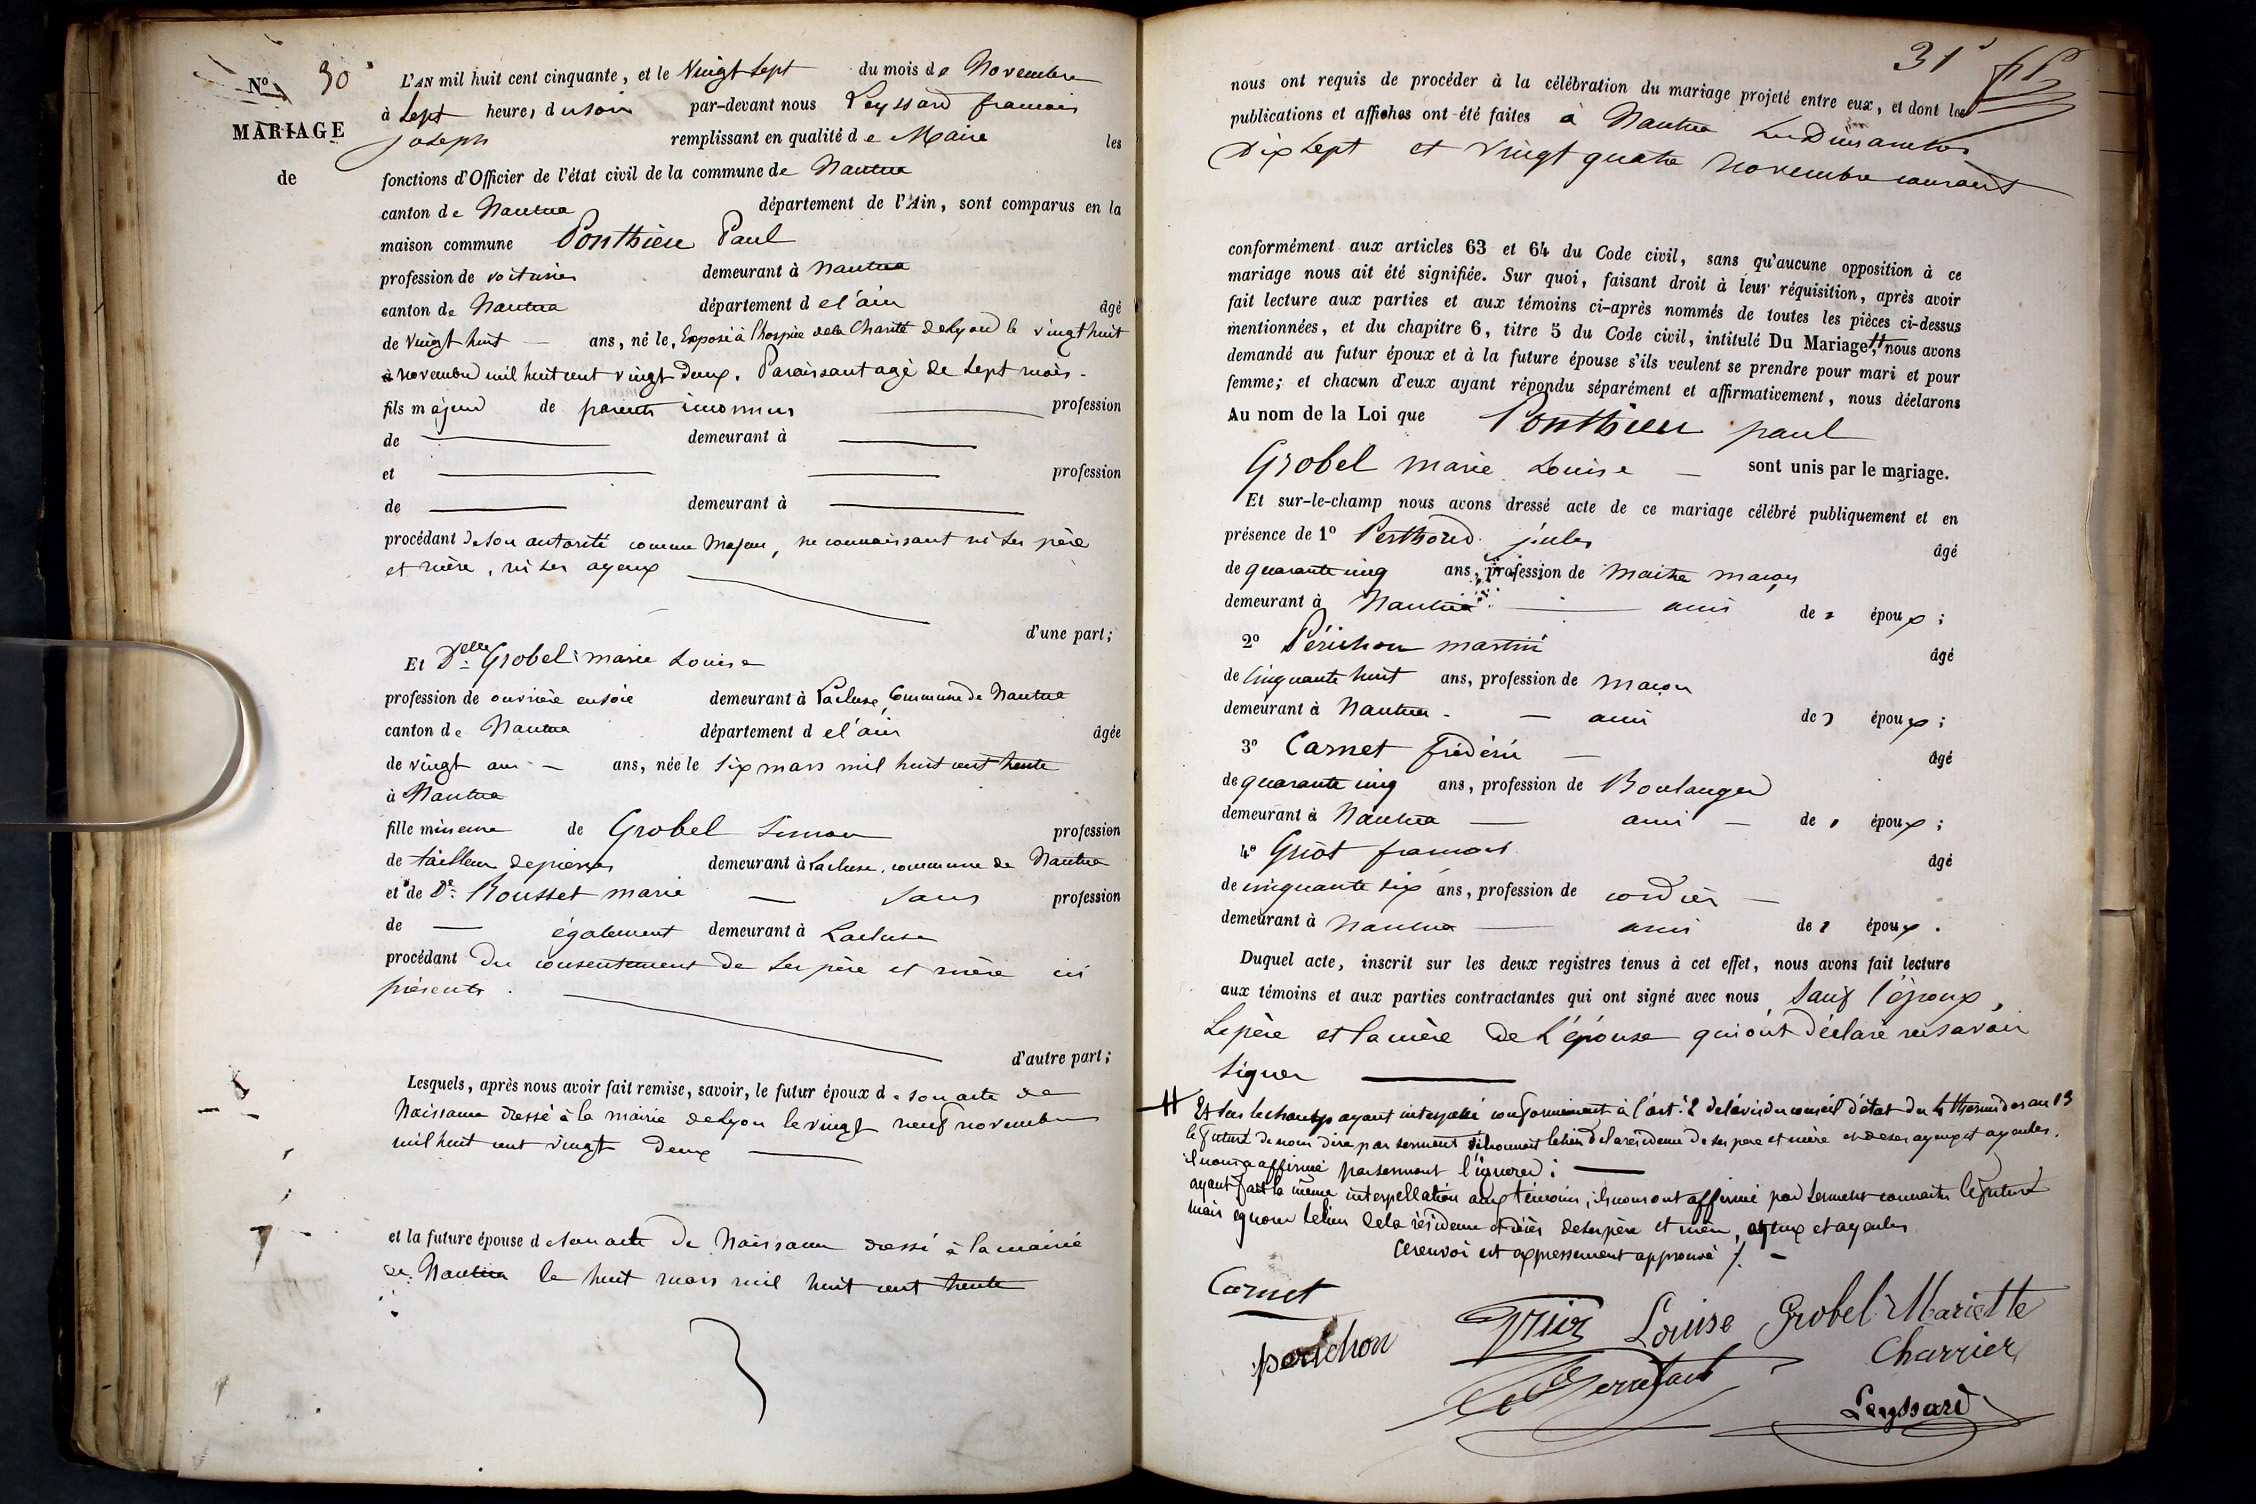 No 30
MARIAGE
de
L'AN mil huit cent cinquante, et le Vingt Sept du mois de Novembre
à Sept heures du soir par-devant nous Leyssard francois
joseph remplissant en qualité de Maire les
fonctions d'Officier de l'état civil de la commune de Nantua
canton de Nantua département de l'Ain, sont comparus en la
maison commune Ponthieu Paul
profession de voiturier demeurant à Nantua
canton de Nantua département de l'ain âgé
de Vingt huit ans, né le, Exposé à l'hospice de la Charité de Lyon le vingt huit
novembre mil huit cent vingt deux. Paraissant agé de Sept mois.
fils majeur de parents inconnus profession
de demeurant à
et profession
de demeurant à
procédant de son autorité comme Majeur, ne connaissant ni ses père
et mère, ni ses ayeux
d'une part;
Et Delle Grobel marie Louise
profession de ouvrière en soie demeurant à Lacluse, Commune de Nantua
canton de Nantua département de l'ain âgée
de vingt ans ans, née le Six mars mil huit cent trente
à Nantua
fille mineure de Grobel Simon profession
de tailleur de pierres demeurant à Lacluse, commune de Nantua
et de De Rousset marie Sans profession
de également demeurant à Lacluse
procédant du consentement de ses père et mère ici
présents.
d'autre part;
Lesquels, après nous avoir fait remise, savoir, le futur époux de son acte de
Naissance dressé à la mairie de Lyon le vingt neuf novembre
mil huit cent vingt deux
et la future épouse de son acte de Naissance dressé à la mairie
de Nantua le huit mars mil huit cent trente
31
nous ont requis de procéder à la célébration du mariage projeté entre eux, et dont les
publications et affiches ont été faites à Nantua les Dimanches
Dix Sept et Vingt quatre Novembre courant
conformément aux articles 63 et 64 du Code civil, sans qu'aucune opposition à ce
mariage nous ait été signifiée. Sur quoi, faisant droit à leur réquisition, après avoir
fait lecture aux parties et aux témoins ci-après nommés de toutes les pièces ci-dessus
mentionnées, et du chapitre 6, titre 5 du Code civil, intitulé Du Mariage, # nous avons
demandé au futur époux et à la future épouse s'ils veulent se prendre pour mari et pour
femme; et chacun d'eux ayant répondu séparément et affirmativement, nous déclarons
Au nom de la Loi que Ponthieu paul
Grobel marie Louise sont unis par le mariage.
Et sur-le-champ nous avons dressé acte de ce mariage célébré publiquement et en
présence de 1° Perthoud jules âgé
de quarante cinq ans, profession de Maitre maçon
demeurant à Nantua ami des époux;
2° Périchon martin âgé
de Cinquante huit ans, profession de maçon
demeurant à Nantua ami des époux;
3° Carnet frédéric âgé
de quarante cinq ans, profession de Boulanger
demeurant à Nantua ami des époux;
4° Griot francois âgé
de cinquante six ans, profession de cordier
demeurant à Nantua ami des époux.
Duquel acte, inscrit sur les deux registres tenus à cet effet, nous avons fait lecture
aux témoins et aux parties contractantes qui ont signé avec nous Sauf l'époux,
le père et la mère de l'épouse qui ont déclaré ne savoir
Signer
# Et sur le champ ayant interpellé conformément à l'art. 2 de l'avis du conseil d'état du 4 thermidor an 13
le futur de nous dire par serment s'il connait le lieu de la résidence de ses pere et mère et de ses ayeux et ayeules.
il nous a affirmé par serment l'ignorer;
ayant fait la même interpellation aux témoins, ils nous ont affirmé par serment connaitre le futur
mais ignorer le lieu de la résidence et décès de ses père et mère, ayeux et ayeules
Ce renvoi est expressement approuvé
Carnet
perichon
Griot
Louise Grobel
Mariette
Charrier
Leyssard